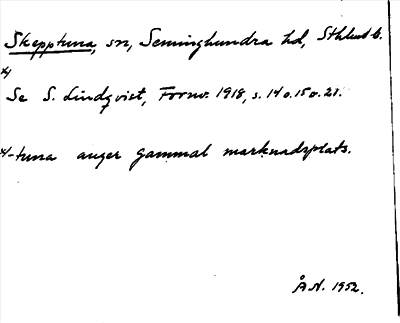 Skepptuna, sn, Seminghundra hd, Sthlms l.
x)
Se S. Lindqvist, Fornv. 1918, s. 14 o. 15 o. 21.
x) -tuna anger gammal marknadsplats.
Å N. 1952.